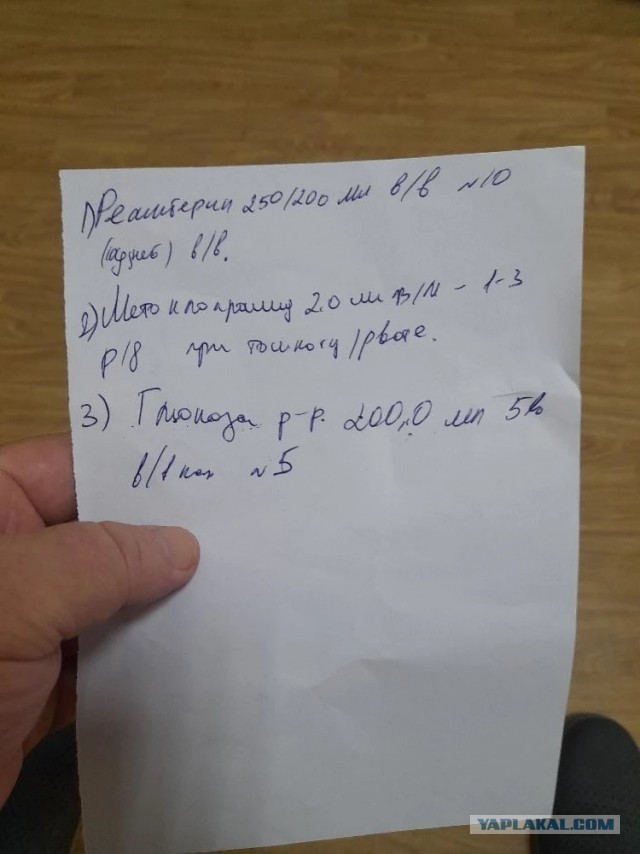 1) Реамберин 250/200 мл в/в №10
в/в.
2) Метоклопрамид 2.0 мл в/м - 1-3
р/д при тошноте/рвоте.
3) Глюкоза р-р. 200,0 мл 5%
в/в кап №5
YAPLAKAL.COM